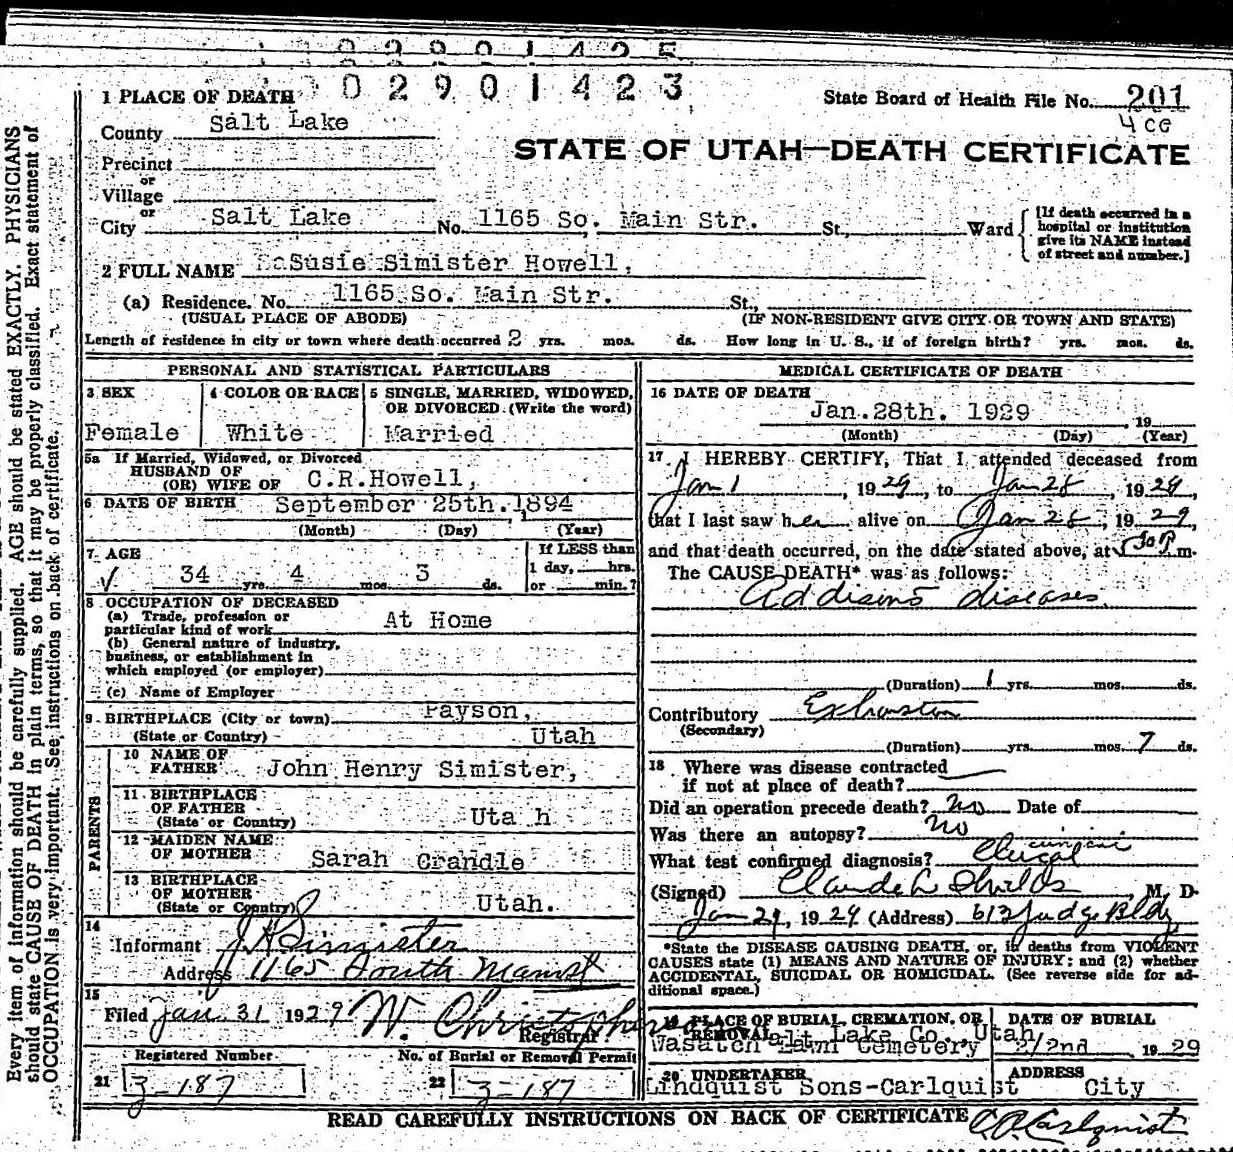 02901425
02901423
1 PLACE OF DEATH
State Board of Health File No. 201
County Salt Lake
4 CG
STATE OF UTAH—DEATH CERTIFICATE
Precinct
or
Village
or
City Salt Lake No. 1165 So. Main Str. St., Ward
[If death occurred in a hospital or institution give its NAME instead of street and number.]
2 FULL NAME Susie Simister Howell,
(a) Residence. No. 1165 So. Main Str. St.,
(USUAL PLACE OF ABODE) (IF NON-RESIDENT GIVE CITY OR TOWN AND STATE)
Length of residence in city or town where death occurred 2 yrs. mos. ds. How long in U. S., if of foreign birth? yrs. mos. ds.
PERSONAL AND STATISTICAL PARTICULARS
3 SEX
Female
4 COLOR OR RACE
White
5 SINGLE, MARRIED, WIDOWED,
OR DIVORCED (Write the word)
Married
5a If Married, Widowed, or Divorced
HUSBAND OF
(OR) WIFE OF C.R.Howell,
6 DATE OF BIRTH September 25th. 1894
(Month) (Day) (Year)
7 AGE
34 yrs. 4 mos. 3 ds.
If LESS than
1 day, hrs.
or min.?
8 OCCUPATION OF DECEASED
(a) Trade, profession or
particular kind of work At Home
(b) General nature of industry,
business, or establishment in
which employed (or employer)
(c) Name of Employer
9 BIRTHPLACE (City or town) Payson,
(State or Country) Utah
PARENTS
10 NAME OF
FATHER John Henry Simister,
11 BIRTHPLACE
OF FATHER
(State or Country) Uta h
12 MAIDEN NAME
OF MOTHER Sarah Crandle
13 BIRTHPLACE
OF MOTHER
(State or Country) Utah.
14
Informant J H Simister
Address 1165 South Main St
15
Filed Jan 31 1929 W. Christopherson
Registrar
Registered Number
21 3-187
No. of Burial or Removal Permit
22 3-187
MEDICAL CERTIFICATE OF DEATH
16 DATE OF DEATH
Jan.28th. 1929 , 19
(Month) (Day) (Year)
17 I HEREBY CERTIFY, That I attended deceased from
Jan 1, 1929, to Jan 28, 1929,
that I last saw her alive on Jan 28, 1929,
and that death occurred, on the date stated above, at P m.
The CAUSE DEATH* was as follows:
Addisons diseases.
(Duration) 1 yrs. mos. ds.
Contributory Exhaustion
(Secondary)
(Duration) yrs. mos. 7 ds.
18 Where was disease contracted
if not at place of death?
Did an operation precede death? no Date of
Was there an autopsy? no
What test confirmed diagnosis? Clinical
(Signed) Claude L Shields M. D.
Jan 29, 1929 (Address) 613 Judge Bldg
*State the DISEASE CAUSING DEATH, or, in deaths from VIOLENT
CAUSES state (1) MEANS AND NATURE OF INJURY; and (2) whether
ACCIDENTAL, SUICIDAL OR HOMICIDAL. (See reverse side for ad-
ditional space.)
19 PLACE OF BURIAL, CREMATION, OR
REMOVAL Salt Lake Co. Utah
Wasatch Lawn Cemetery
DATE OF BURIAL
2/2nd 1929
20 UNDERTAKER
Lindquist Sons-Carlquist
ADDRESS
City
READ CAREFULLY INSTRUCTIONS ON BACK OF CERTIFICATE
C.A. Carlquist
Every item of information should be carefully supplied. AGE should be stated EXACTLY. PHYSICIANS
should state CAUSE OF DEATH in plain terms, so that it may be properly classified. Exact statement of
OCCUPATION is very important. See instructions on back of certificate.